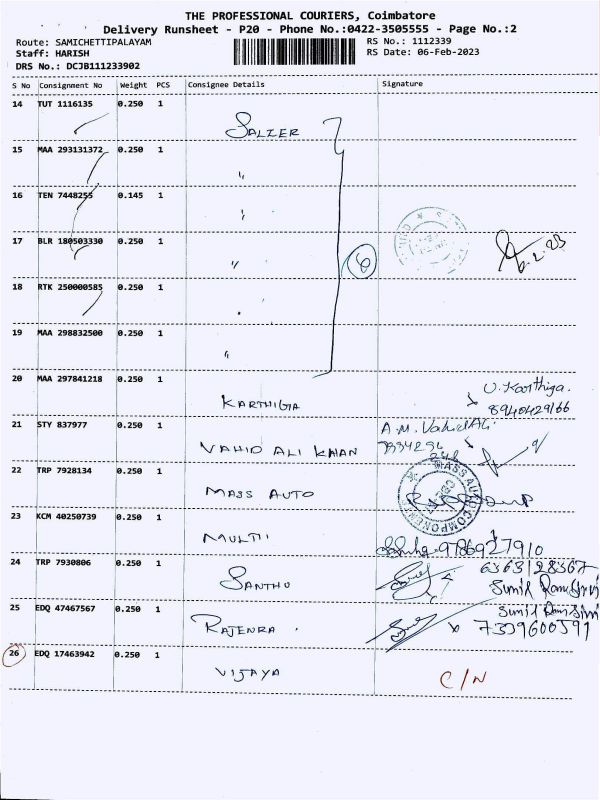 THE PROFESSIONAL COURIERS, Coimbatore
Delivery Runsheet - P20 - Phone No.:0422-3505555 - Page No.:2
Route: SAMICHETTIPALAYAM RS No.: 1112339
Staff: HARISH RS Date: 06-Feb-2023
DRS No.: DCJB111233902
S No Consignment No Weight PCS Consignee Details Signature
14 TUT 1116135 0.250 1
SALZER
15 MAA 293131372 0.250 1
"
16 TEN 7448255 0.145 1
"
17 BLR 180503330 0.250 1
" 6 6.2.23
18 RTK 250000585 0.250 1
"
19 MAA 298832500 0.250 1
"
20 MAA 297841218 0.250 1
KARTHIGA U. Karthiga.
8940429166
21 STY 837977 0.250 1 A.M. Vahid Ali
VAHID ALI KHAN
22 TRP 7928134 0.250 1
MASS AUTO MASS AUTO COMPONENT
23 KCM 40250739 0.250 1
MULTI 9786927910
24 TRP 7930806 0.250 1 6363128367
SANTHU Sunil
25 EDQ 47467567 0.250 1 Sunil
RAJENRA. 7339600591
26 EDQ 17463942 0.250 1
VIJAYA C/N